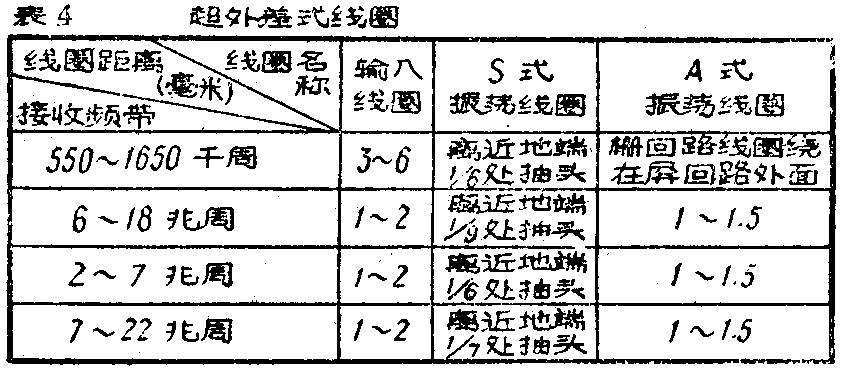 表4 超外差式线圈
线圈距离 (毫米) 线圈名称
接收频带
输入线圈
S 式振荡线圈
A 式振荡线圈
550～1650 千周
3～6
靠近地端
1/6处抽头
栅回路线圈绕
在屏回路外面
6～18 兆周
1～2
靠近地端
1/9处抽头
1～1.5
2～7 兆周
1～2
靠近地端
1/6处抽头
1～1.5
7～22 兆周
1～2
靠近地端
1/7处抽头
1～1.5